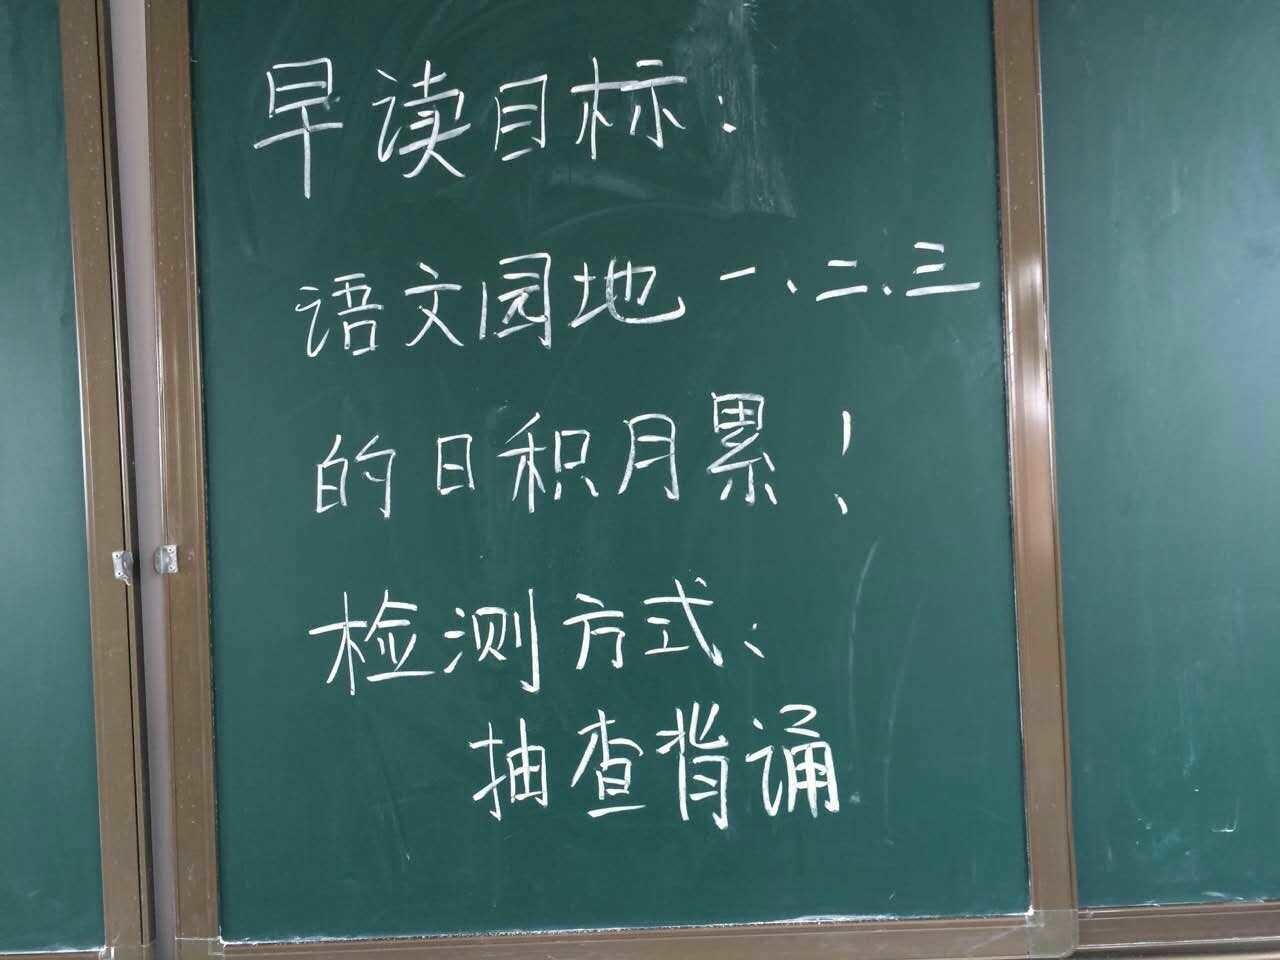 早读目标：
语文园地一、二、三
的日积月累！
检测方式：
抽查背诵